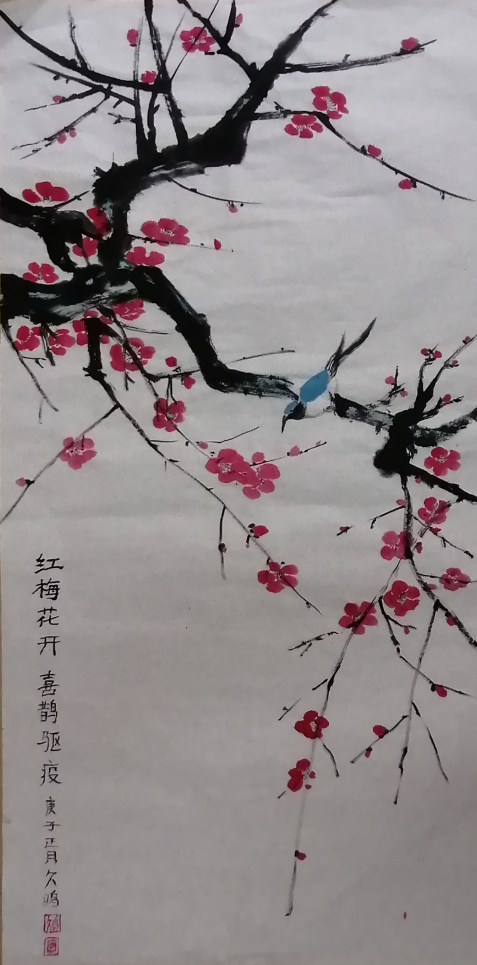 红梅花开 喜鹊驱疫 庚子正月久鸣